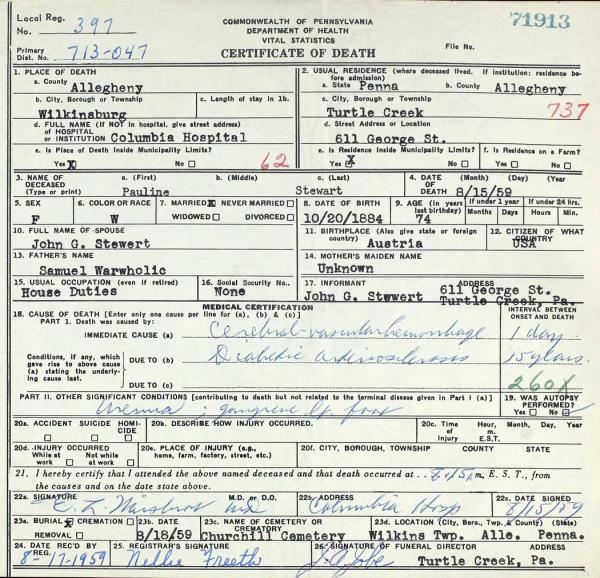 Local Reg. No. 397
COMMONWEALTH OF PENNSYLVANIA
DEPARTMENT OF HEALTH
VITAL STATISTICS
71913
Primary Dist. No. 713-047
CERTIFICATE OF DEATH
File No.
1. PLACE OF DEATH
a. County
Allegheny
2. USUAL RESIDENCE (where deceased lived. If institution: residence before admission)
a. State Penna b. County Allegheny
b. City, Borough or Township
Wilkinsburg
c. Length of stay in 1b.
c. City, Borough or Township
Turtle Creek
737
d. FULL NAME (If NOT in hospital, give street address)
of HOSPITAL
or INSTITUTION Columbia Hospital
d. Street Address or Location
611 George St.
e. Is Place of Death Inside Municipality Limits?
Yes X No
62
e. Is Residence Inside Municipality Limits?
Yes X No
f. Is Residence on a Farm?
Yes No
3. NAME OF DECEASED (Type or print)
a. (First) b. (Middle) c. (Last)
Pauline Stewart
4. DATE OF DEATH (Month) (Day) (Year)
8/15/59
5. SEX
F
6. COLOR OR RACE
W
7. MARRIED X NEVER MARRIED
WIDOWED DIVORCED
8. DATE OF BIRTH
10/20/1884
9. AGE (in years last birthday)
74
If under 1 year
Months Days
If under 24 hrs.
Hours Min.
10. FULL NAME OF SPOUSE
John G. Stewert
11. BIRTHPLACE (Also give state or foreign country)
Austria
12. CITIZEN OF WHAT COUNTRY
USA
13. FATHER'S NAME
Samuel Warwholic
14. MOTHER'S MAIDEN NAME
Unknown
15. USUAL OCCUPATION (even if retired)
House Duties
16. Social Security No.
None
17. INFORMANT ADDRESS
John G. Stewert 611 George St.
Turtle Creek, Pa.
MEDICAL CERTIFICATION
18. CAUSE OF DEATH [Enter only one cause per line for (a), (b) & (c)]
PART 1. Death was caused by:
INTERVAL BETWEEN ONSET AND DEATH
IMMEDIATE CAUSE (a) Cerebral-vascular hemorrhage 1 day
Conditions, if any, which gave rise to above cause (a) stating the underlying cause last.
DUE TO (b) Diabetic arteriosclerosis 15 years
DUE TO (c)
260X
PART II. OTHER SIGNIFICANT CONDITIONS [contributing to death but not related to the terminal disease given in Part I (a)]
Uremia; gangrene lt. foot
19. WAS AUTOPSY PERFORMED?
Yes No
20a. ACCIDENT SUICIDE HOMICIDE
20b. DESCRIBE HOW INJURY OCCURRED.
20c. Time of Injury
Hour, Month, Day, Year
m.
E.S.T.
20d. INJURY OCCURRED
While at work Not while at work
20e. PLACE OF INJURY (e.g., home, farm, factory, street, etc.)
20f. CITY, BOROUGH, TOWNSHIP COUNTY STATE
21. I hereby certify that I attended the above named deceased and that death occurred at 8:015 m, E. S. T., from
the causes and on the date state above.
22a. SIGNATURE M.D. or D.O.
22b. ADDRESS
Columbia Hosp
22c. DATE SIGNED
8/15/59
23a. BURIAL X CREMATION
REMOVAL
23b. DATE
8/18/59
23c. NAME OF CEMETERY OR CREMATORY
Churchill Cemetery
23d. LOCATION (City, Boro., Twp. & County) (State)
Wilkins Twp. Alle. Penna.
24. DATE REC'D BY REG.
8-17-1959
25. REGISTRAR'S SIGNATURE
Nellie Freeth
26. SIGNATURE OF FUNERAL DIRECTOR ADDRESS
Turtle Creek, Pa.